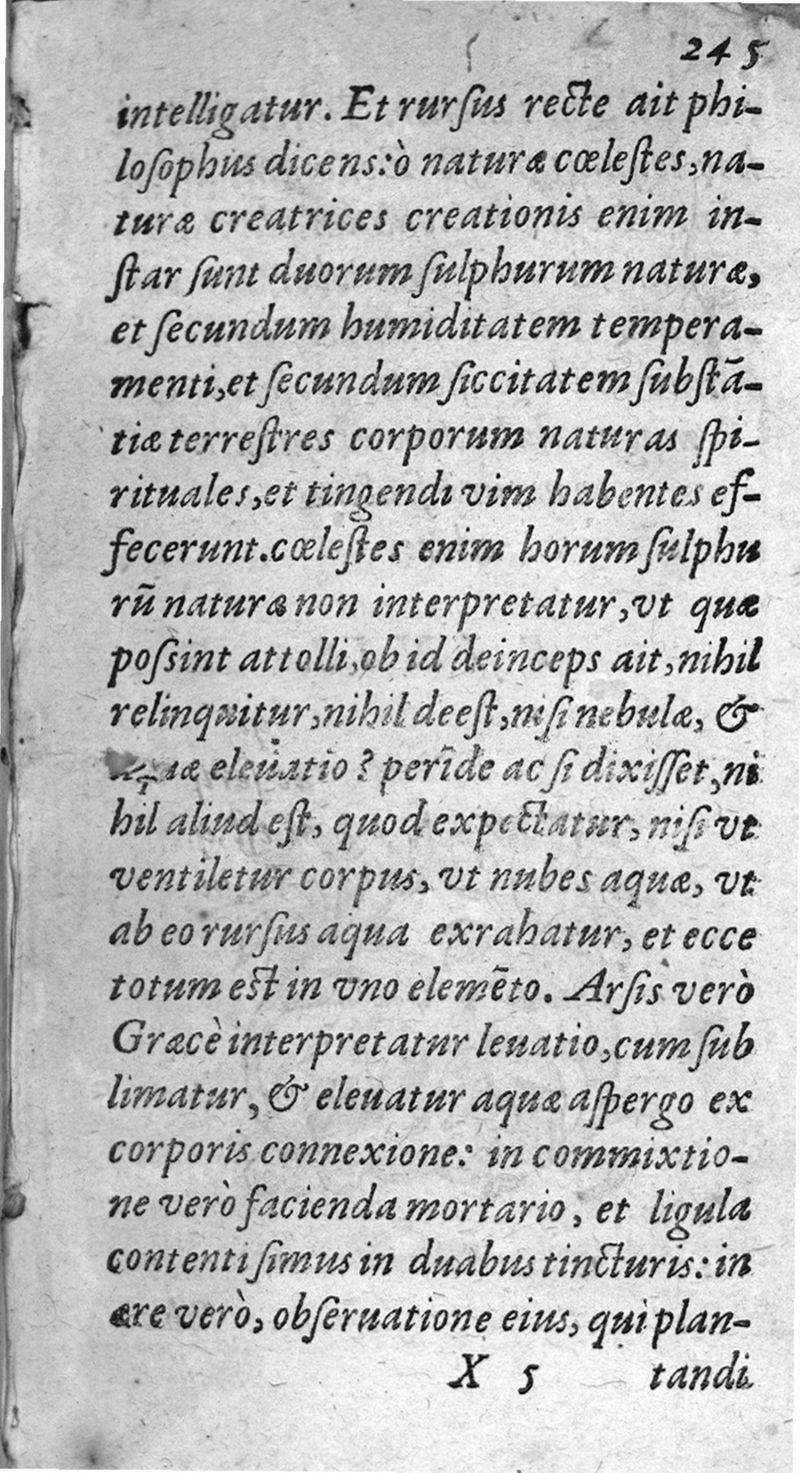 245
intelligatur. Et rurſus recte ait phi-
loſophus dicens: ò naturæ cœleſtes, na-
turæ creatrices creationis enim in-
ſtar ſunt duorum ſulphurum naturæ,
et ſecundum humiditatem tempera-
menti, et ſecundum ſiccitatem ſubſtā-
tiæ terreſtres corporum naturas ſpi-
rituales, et tingendi vim habentes ef-
fecerunt. cœleſtes enim horum ſulphu
rū naturæ non interpretatur, vt quæ
poſsint attolli, ob id deinceps ait, nihil
relinquitur, nihil deeſt, niſi nebulæ, &
eleuatio? perīde ac ſi dixiſſet, ni
hil aliud eſt, quod expectatur, niſi vt
ventiletur corpus, vt nubes aquæ, vt
ab eo rurſus aqua exrahatur, et ecce
totum eſt in vno elemēto. Arſis verò
Græcè interpretatur leuatio, cum ſub
limatur, & eleuatur aquæ aſpergo ex
corporis connexione: in commixtio-
ne verò facienda mortario, et ligula
contenti ſimus in duabus tincturis: in
ære verò, obſeruatione eius, qui plan-
X 5 tandi